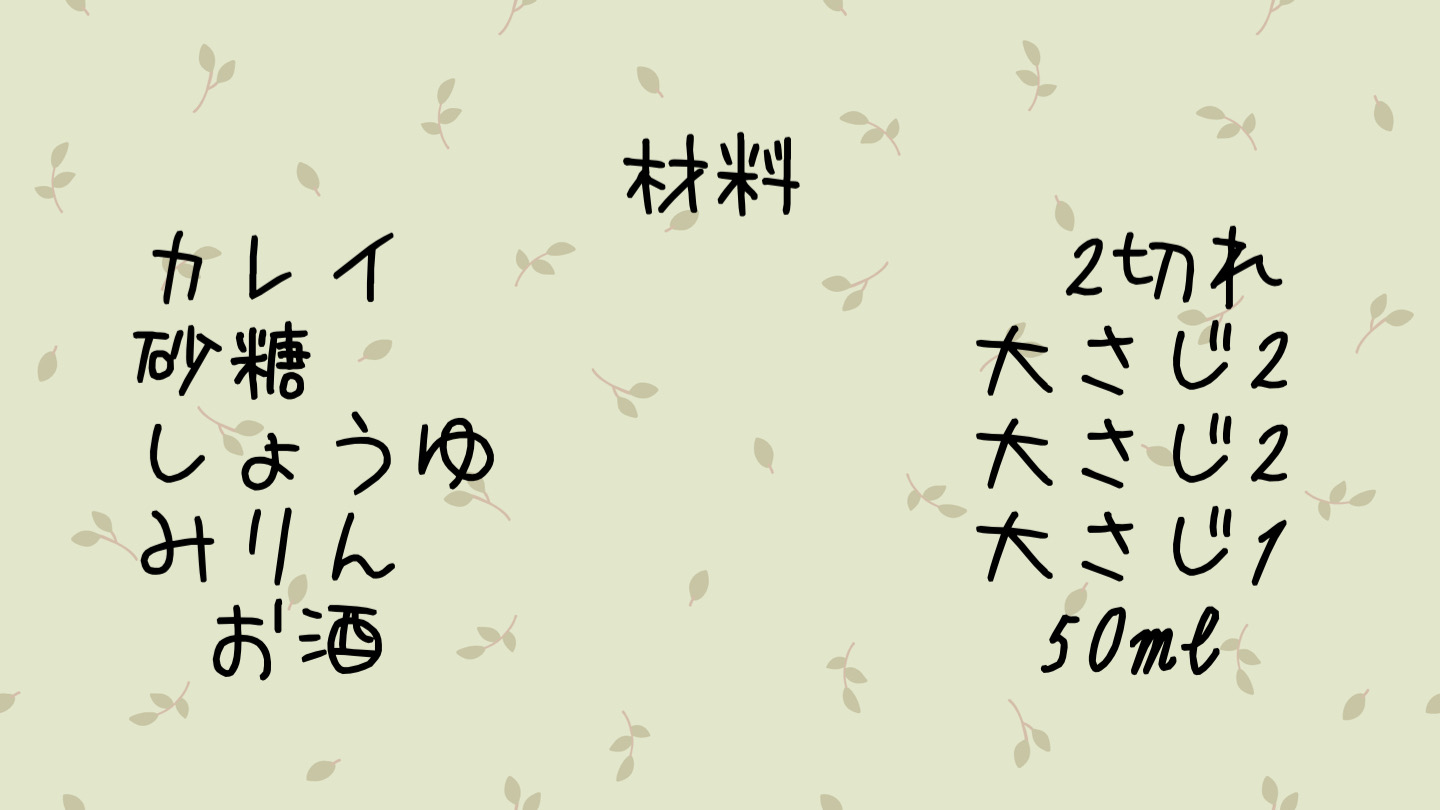 材料
カレイ 2切れ
砂糖 大さじ2
しょうゆ 大さじ2
みりん 大さじ1
お酒 50ml